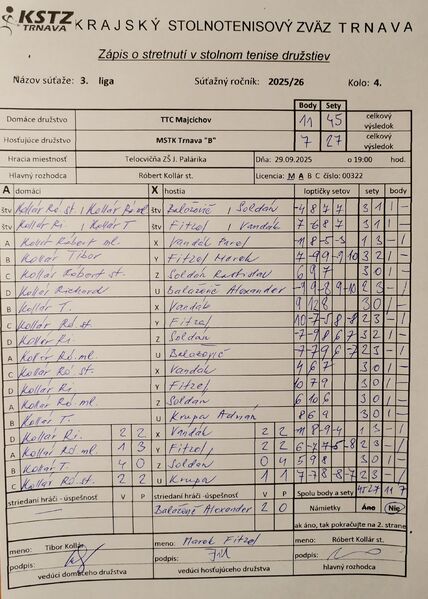 KSTZ TRNAVA KRAJSKÝ STOLNOTENISOVÝ ZVÄZ TRNAVA
Zápis o stretnutí v stolnom tenise družstiev
Názov súťaže: 3. liga Súťažný ročník: 2025/26 Kolo: 4.
Body Sety
Domáce družstvo TTC Majcichov 11 45 celkový výsledok
Hosťujúce družstvo MSTK Trnava "B" 7 27 celkový výsledok
Hracia miestnosť Telocvičňa ZŠ J. Palárika Dňa: 29.09.2025 o 19:00 hod.
Hlavný rozhodca Róbert Kollár st. Licencia: M A B C číslo: 00322
A domáci X hostia loptičky setov sety body
štv Kollár Ró. st. / Kollár Ró. ml. štv Baložovič / Soldán -4 8 7 7 3 1 1 -
štv Kollár Ri. / Kollár T. štv Fitzel / Vandák 7 -6 8 7 3 1 1 -
A Kollár Róbert ml. X Vandák Pavel 1 3 - 1
B Kollár Tibor Y Fitzel Marek 3 2 1 -
C Kollár Róbert st. Z Soldán Rastislav 6 9 7 3 0 1 -
D Kollár Richard U Baložovič Alexander -9 9 -8 9 -10 2 3 - 1
B Kollár T. X Vandák 9 12 8 3 0 1 -
C Kollár Ró. st. Y Fitzel 10 -7 -5 8 -8 2 3 - 1
D Kollár Ri. Z Soldán 3 2 1 -
A Kollár Ró. ml. U Baložovič 2 3 - 1
C Kollár Ró. st. X Vandák 4 6 7 3 0 1 -
D Kollár Ri. Y Fitzel 10 7 9 3 0 1 -
A Kollár Ró. ml. Z Soldán 6 10 6 3 0 1 -
B Kollár T. U Krupa Adrián 8 6 9 3 0 1 -
D Kollár Ri. 2 2 X Vandák 2 2 -11 8 -9 -4 1 3 - 1
A Kollár Ró. ml. 1 3 Y Fitzel 2 2 6 -7 7 -5 -8 2 3 - 1
B Kollár T. 4 0 Z Soldán 0 4 5 9 8 3 0 1 -
C Kollár Ró. st. 2 2 U Krupa 1 1 2 3 - 1
striedaní hráči - úspešnosť V P striedaní hráči - úspešnosť V P Spolu body a sety 45 27 11 7
Baložovič Alexander 2 0 Námietky Áno Nie
ak áno, tak pokračujte na 2. strane
meno: Tibor Kollár meno: Marek Fitzel meno: Róbert Kollár st.
podpis: podpis: podpis:
vedúci domáceho družstva vedúci hosťujúceho družstva hlavný rozhodca